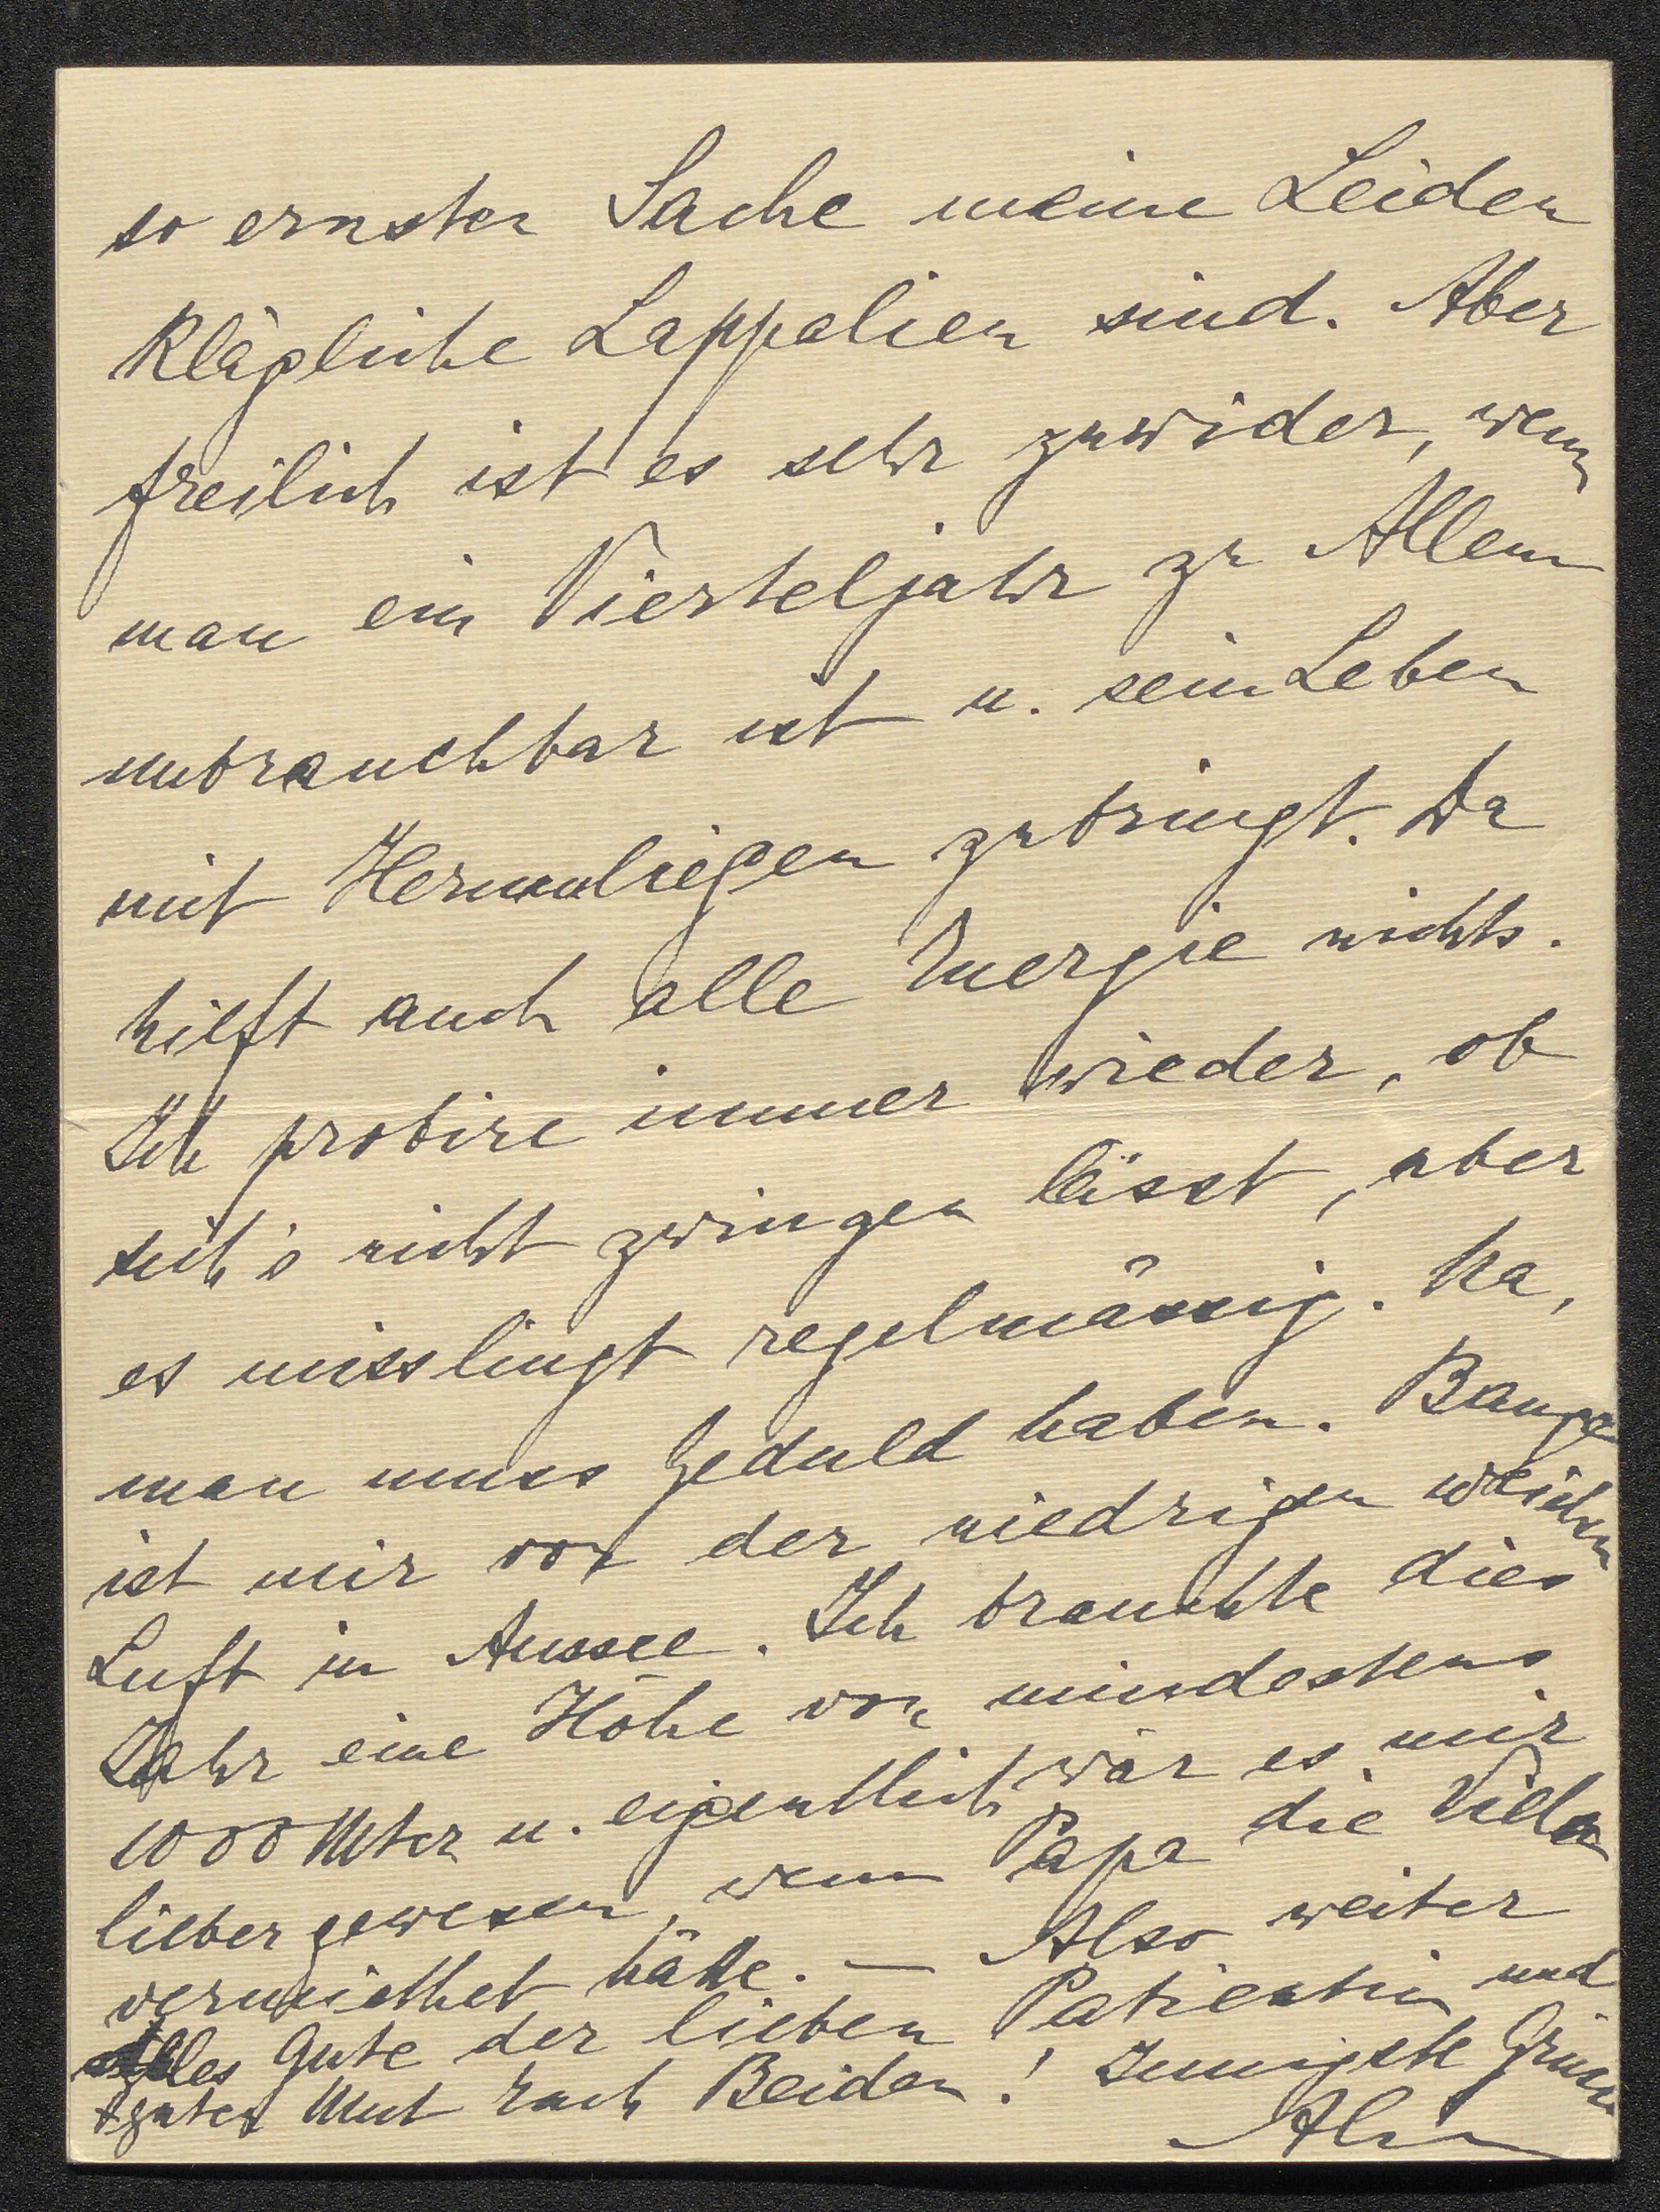 so ernster Sache meine Leiden
klägliche Lappalien sind. Aber
freilich ist es sehr zuwider, wenn
man ein Vierteljahr zu Allem
unbrauchbar ist u. sein Leben
mit Herumliegen zubringt. Da
hilft auch alle Energie nichts.
Ich probire immer wieder, ob
sich's nicht zwingen lässt, aber
es misslingt regelmässig. Na,
man muss Geduld haben. Bange
ist mir vor der niedrigen weichen
Luft in Aussee. Ich brauchte dies
Jahr eine Höhe von mindestens
1000 Meter u. eigentlich wär es mir
lieber gewesen, wenn Papa die Villa
vermiethet hätte. — Also weiter
alles Gute der lieben Patientin und
guten Mut Euch Beiden! Innigste Grüsse